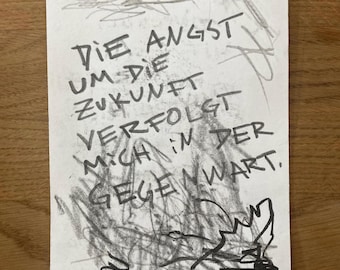 DIE ANGST
UM DIE
ZUKUNFT
VERFOLGT
MICH IN DER
GEGENWART.